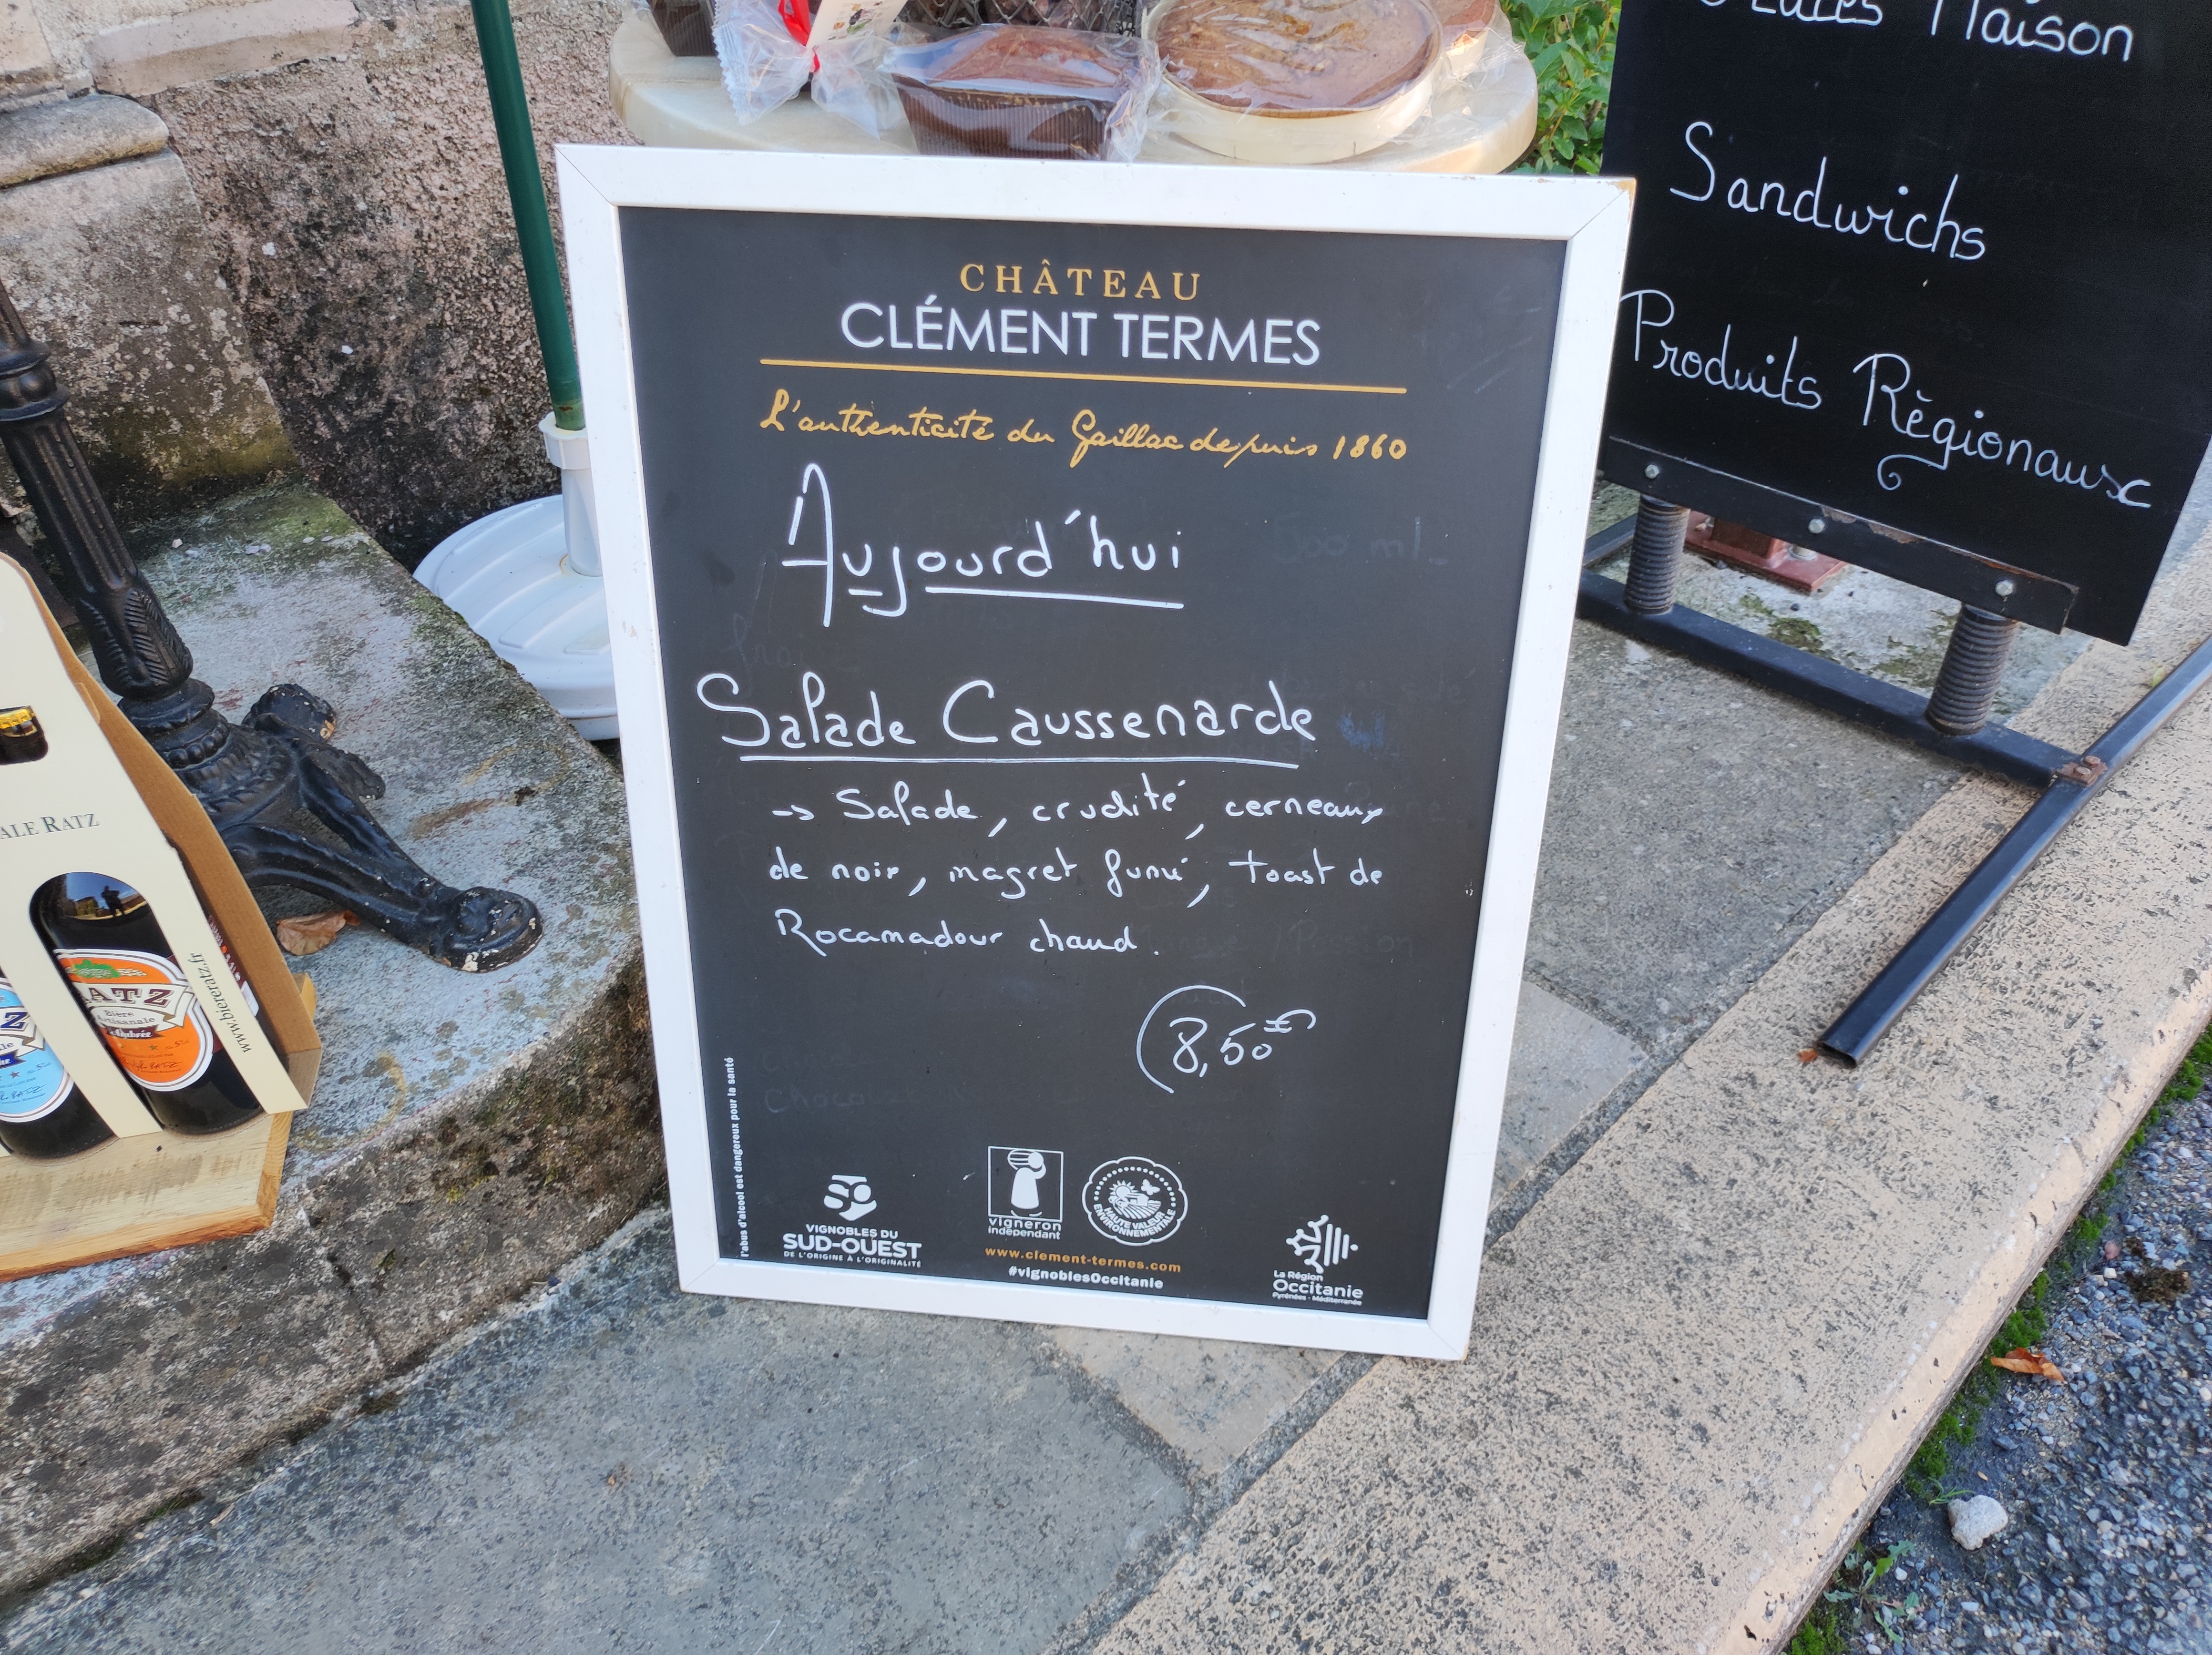 CHÂTEAU
CLÉMENT TERMES
L'authenticité du Gaillac depuis 1860
Aujourd'hui
Salade Caussenarde
-> Salade, crudité, cerneaux
de noix, magret fumé, toast de
Rocamadour chaud.
8,50€
l'abus d'alcool est dangereux pour la santé
VIGNOBLES DU
SUD-OUEST
DE L'ORIGINE À L'ORIGINALITÉ
vigneron
indépendant
HAUTE VALEUR
ENVIRONNEMENTALE
www.clement-termes.com
#vignoblesOccitanie
La Région
Occitanie
Pyrénées - Méditerranée
Maison
Sandwichs
Produits Règionaux
ALE RATZ
www.biereratz.fr
RATZ
Bière
Artisanale